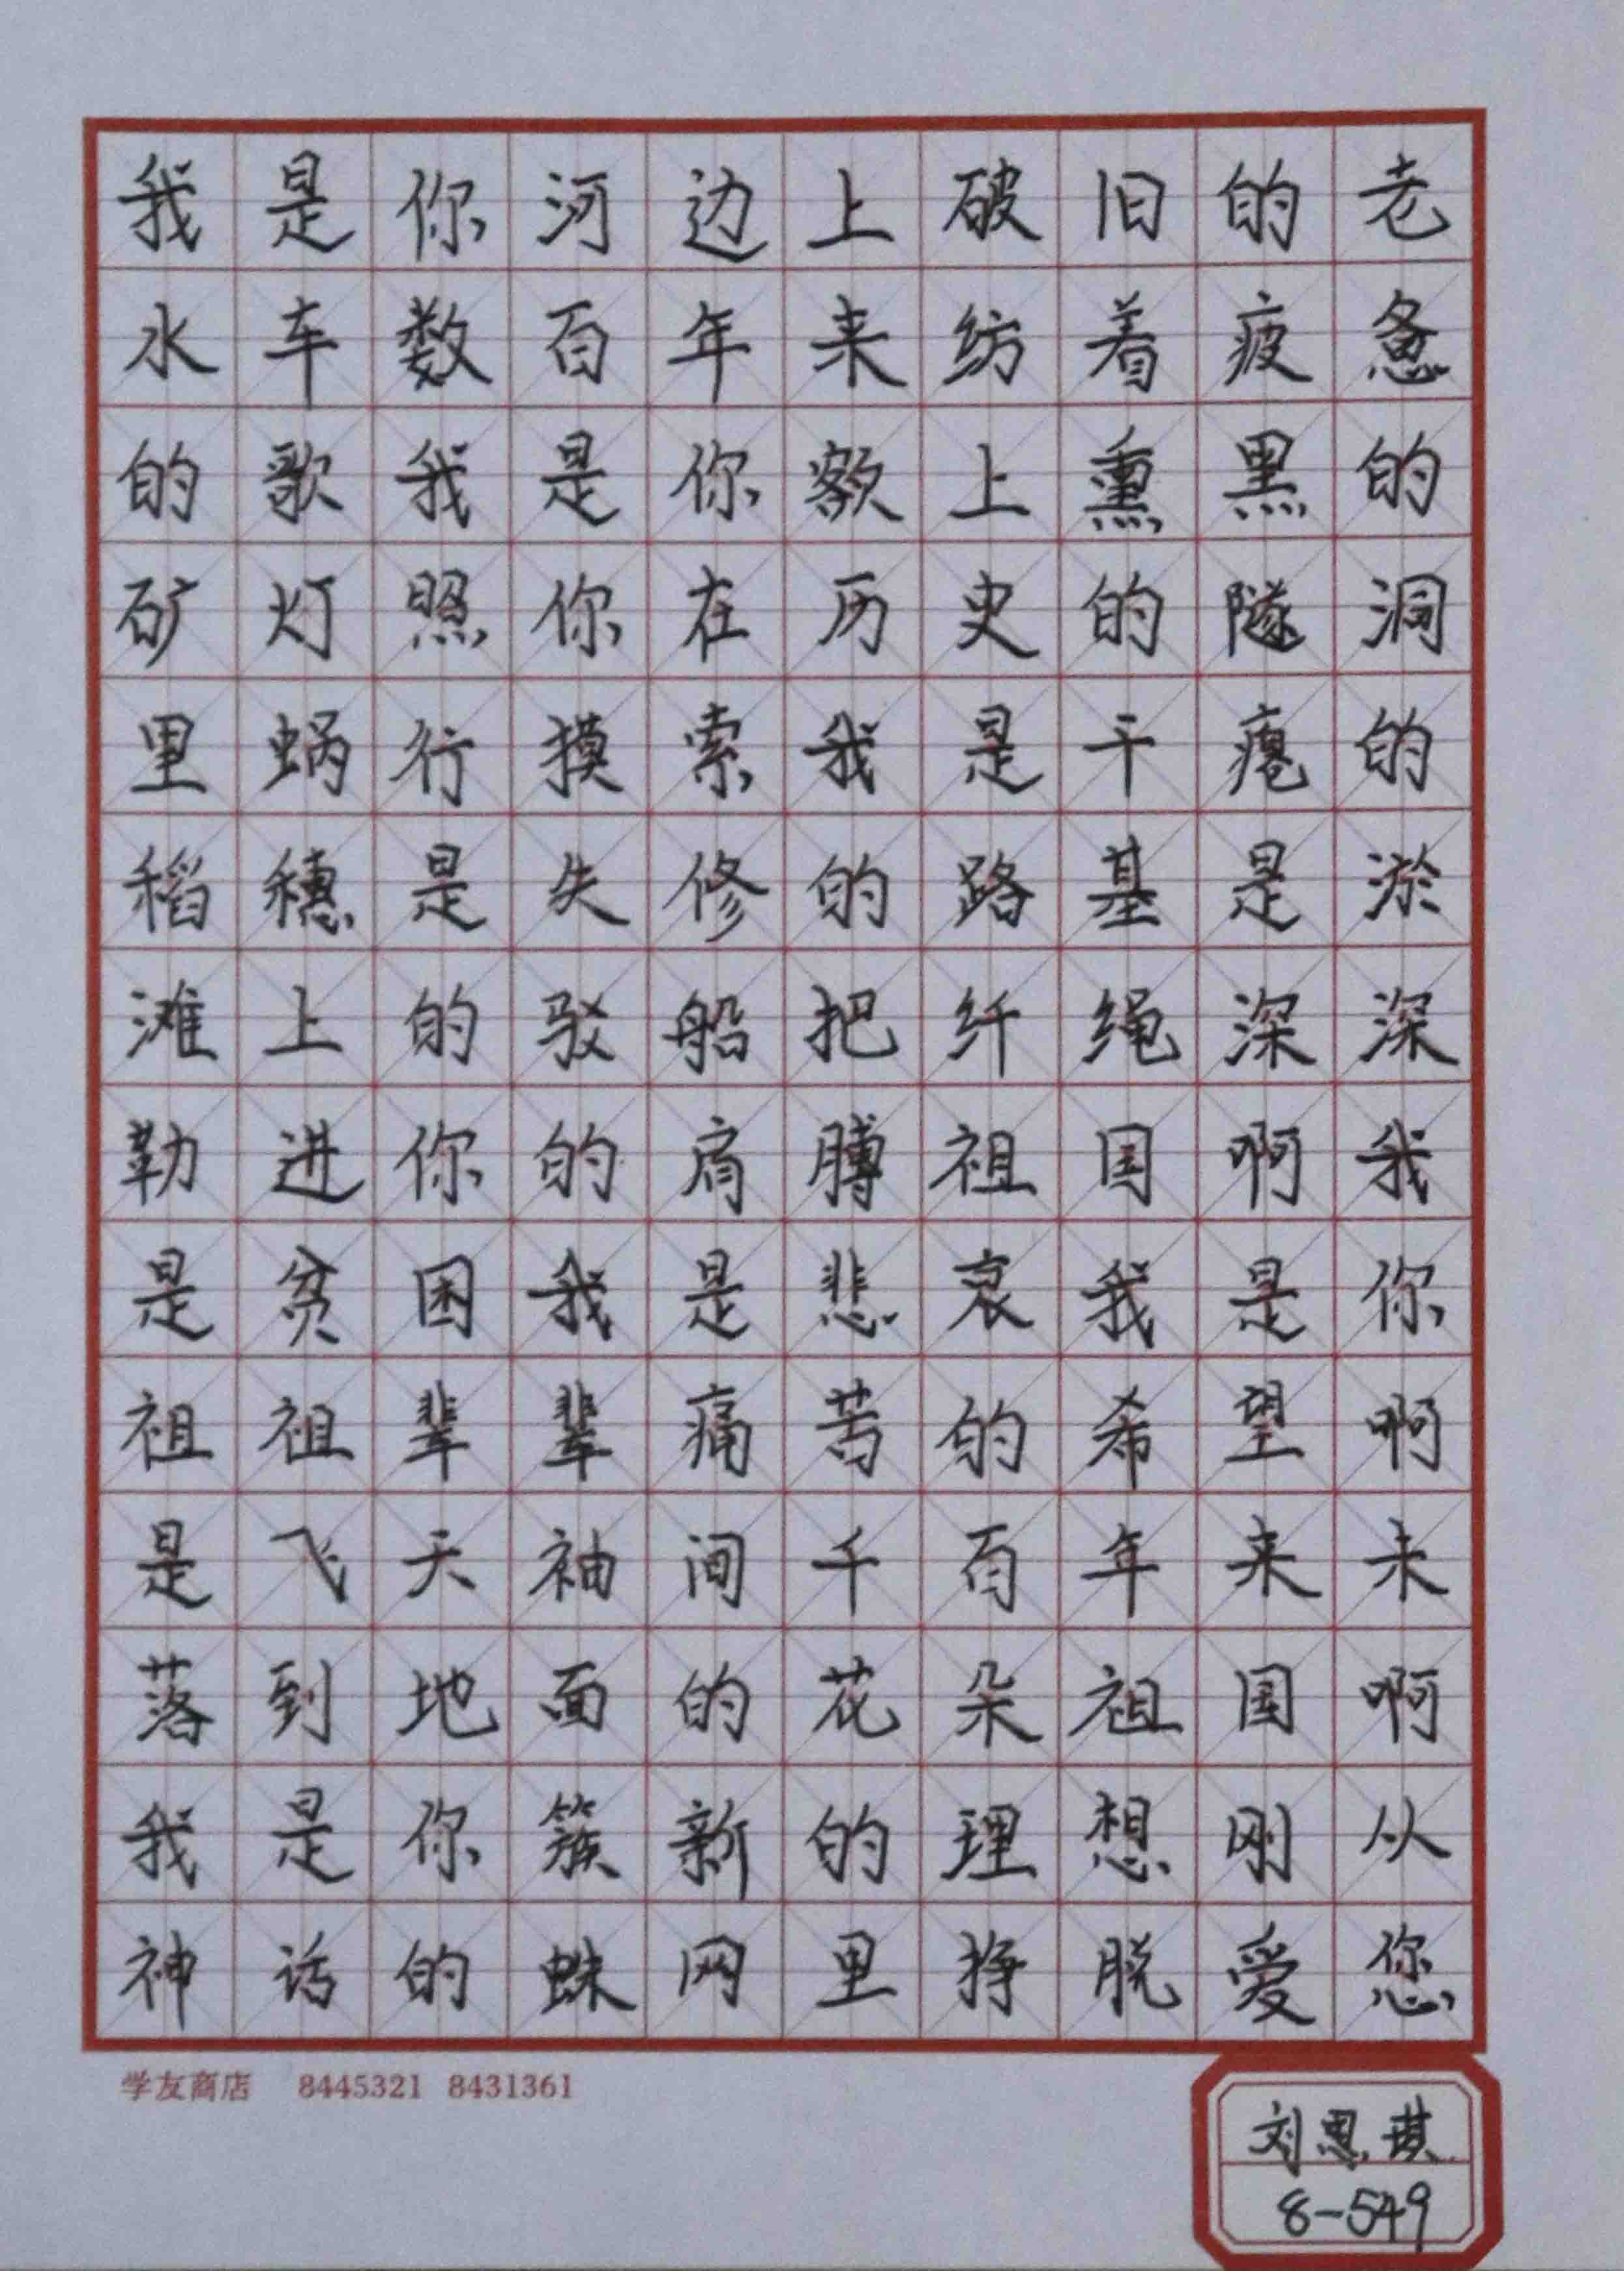 我是你河边上破旧的老
水车数百年来纺着疲惫
的歌我是你额上熏黑的
矿灯照你在历史的隧洞
里蜗行摸索我是干瘪的
稻穗是失修的路基是淤
滩上的驳船把纤绳深深
勒进你的肩膊祖国啊我
是贫困我是悲哀我是你
祖祖辈辈痛苦的希望啊
是飞天袖间千百年来未
落到地面的花朵祖国啊
我是你簇新的理想刚从
神话的蛛网里挣脱爱您
学友商店 8445321 8431361
刘恩琪
8-549